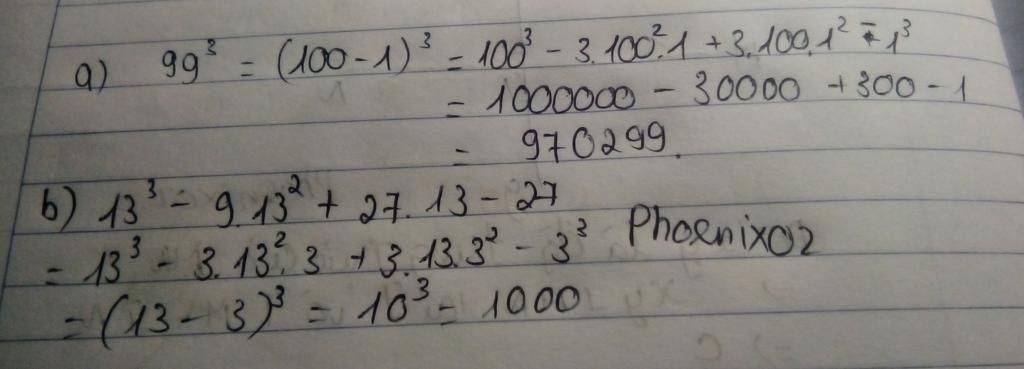 a) 99³ = (100 - 1)³ = 100³ - 3.100².1 + 3.100.1² - 1³
= 1000000 - 30000 + 300 - 1
= 970299.
b) 13³ - 9.13² + 27.13 - 27
= 13³ - 3.13².3 + 3.13.3² - 3³ Phoenix02
= (13 - 3)³ = 10³ = 1000